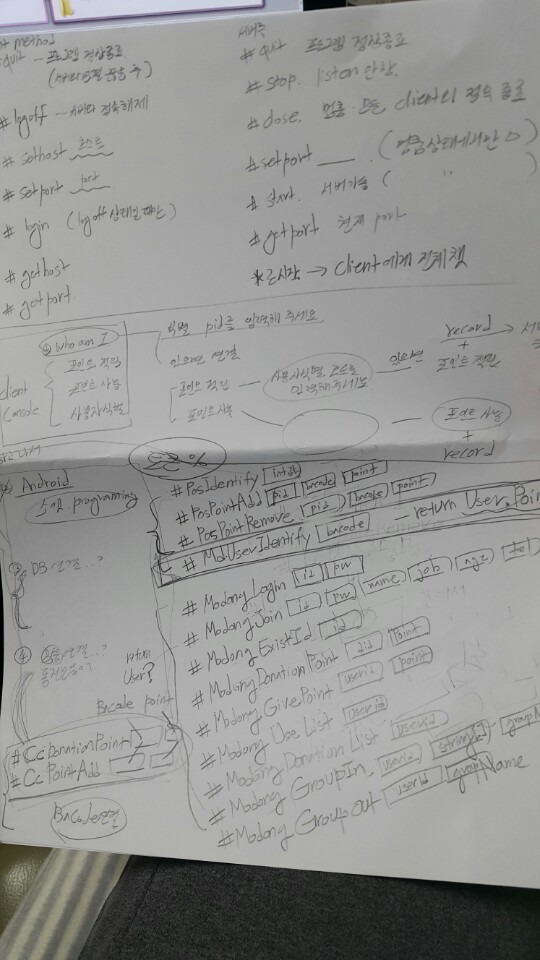 nt method
quit - 프로그램 정상종료
# logoff - 서버와 접속해제
# sethost 호스트
# setport port
# login (logoff 상태일때만)
# gethost
# getport
서버측
# quit 프로그램 정상종료
# stop. listen 안함.
# close. 멈춤. 모든 client의 접속 종료
# setport ___. (멈춤상태에서만
# start. 서버가동 ( " )
# getport 현재 port
→ client에게 전체챗
① who am I
포인트 적립
포인트 사용
사용자식별
client
Console
식별 pid를 입력해 주세요
있으면 연결
포인트 적립
사용자식별 코드를 입력해주세요
있으면
record
+
포인트 적립
포인트사용
포인트 사용
+
record
토큰 %
Android
programing
③ DB연결..?
④
Bncode point
User?
# CcDonationPoint
# Cc PointAdd
Bncode연결
# PosIdentify
# PosPointAdd pid bncode point
# PosPointRemove pid bncode point
# MdUserIdentify bncode - return User, Poin
# Modong Login id pw
# Modong Join id pw name job age tel
# Modong ExistId id
# Modong DonationPoint did point
# Modong GivePoint userid point
# Modong Use List userid
# Modong Donation List userid
# Modong GroupIn. userid string[2] groupN
# Modong Group out userId groupName